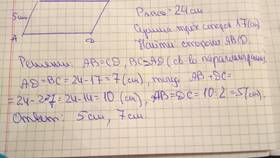 Pпавс = 24 см
5см
Сумма трёх сторон 17 (см)
A
D
Найти: стороны ABCD.
Решение: AB=CD, BC=AD (св-ва параллелограмма)
AD = BC = 24 - 17 = 7 (см), тогда AB + DC =
= 24 - 2·7 = 24 - 14 = 10 (см), AB = DC = 10 : 2 = 5 (см).
Ответ: 5 см, 7 см.